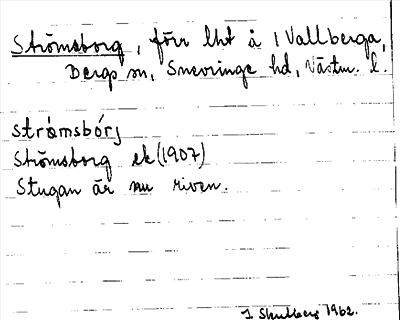 Strömsborg, förr lht å 1 Vallberga,
Bergs sn, Snevringe hd, Västm. l.
stråmsbórj
Strömsborg ek (1907)
Stugan är nu riven.
1962.